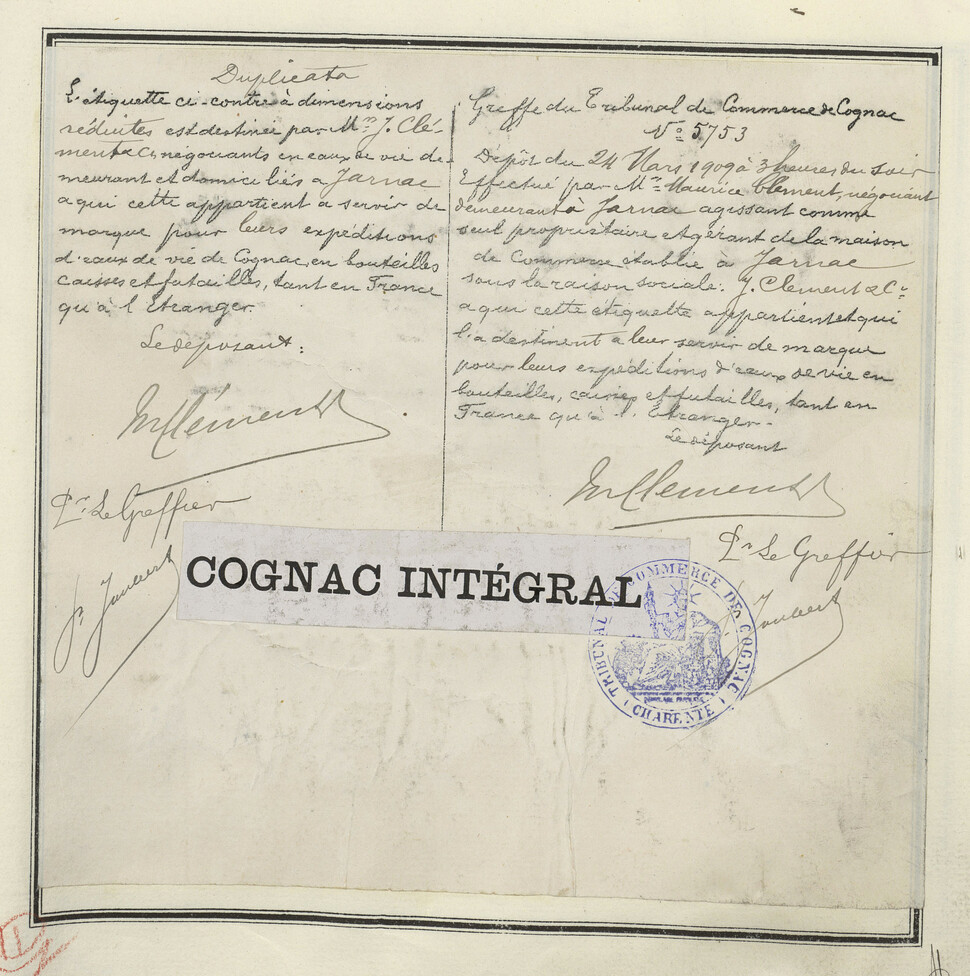 Duplicata
L'étiquette ci-contre à dimensions
réduites est destinée par Mrs J. Clé-
ment & Cie négociants en eaux de vie de-
meurant et domiciliés a Jarnac
a qui cette appartient a servir de
marque pour leurs expéditions
d'eaux de vie de Cognac, en bouteilles
caisses et futailles, tant en France
qu'à l'Etranger.
Le déposant:
M Clément
Pr Le Greffier
P. Joubert
Greffe du Tribunal de Commerce de Cognac
No 5753
Dépôt du 24 Mars 1909 à 3 heures du soir
Effectué par Mr Maurice Clement, négociant
demeurant à Jarnac agissant comme
seul propriétaire et gérant de la maison
de Commerce établie à Jarnac
sous la raison sociale: J. Clement & Cie
a qui cette étiquette appartient et qui
l'a destinent a leur servir de marque
pour leurs expéditions d'eaux de vie en
bouteilles, caisses et futailles, tant en
France qu'à l'Etranger.
Le déposant
M Clement
Pr Le Greffier
Joubert
COGNAC INTÉGRAL
TRIBUNAL DE COMMERCE DE COGNAC
(CHARENTE)